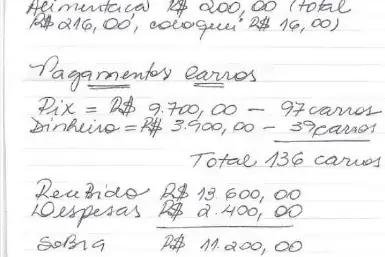 Alimentaca R$ 200,00 (total
R$ 216,00, coloquei R$ 16,00)
Pagamentos carros
Pix = R$ 9.700,00 - 97 carros
Dinheiro = R$ 3.900,00 - 39 carros
Total 136 carros
Recebido R$ 13.600,00
Despesas R$ 2.400,00
Sobra R$ 11.200,00